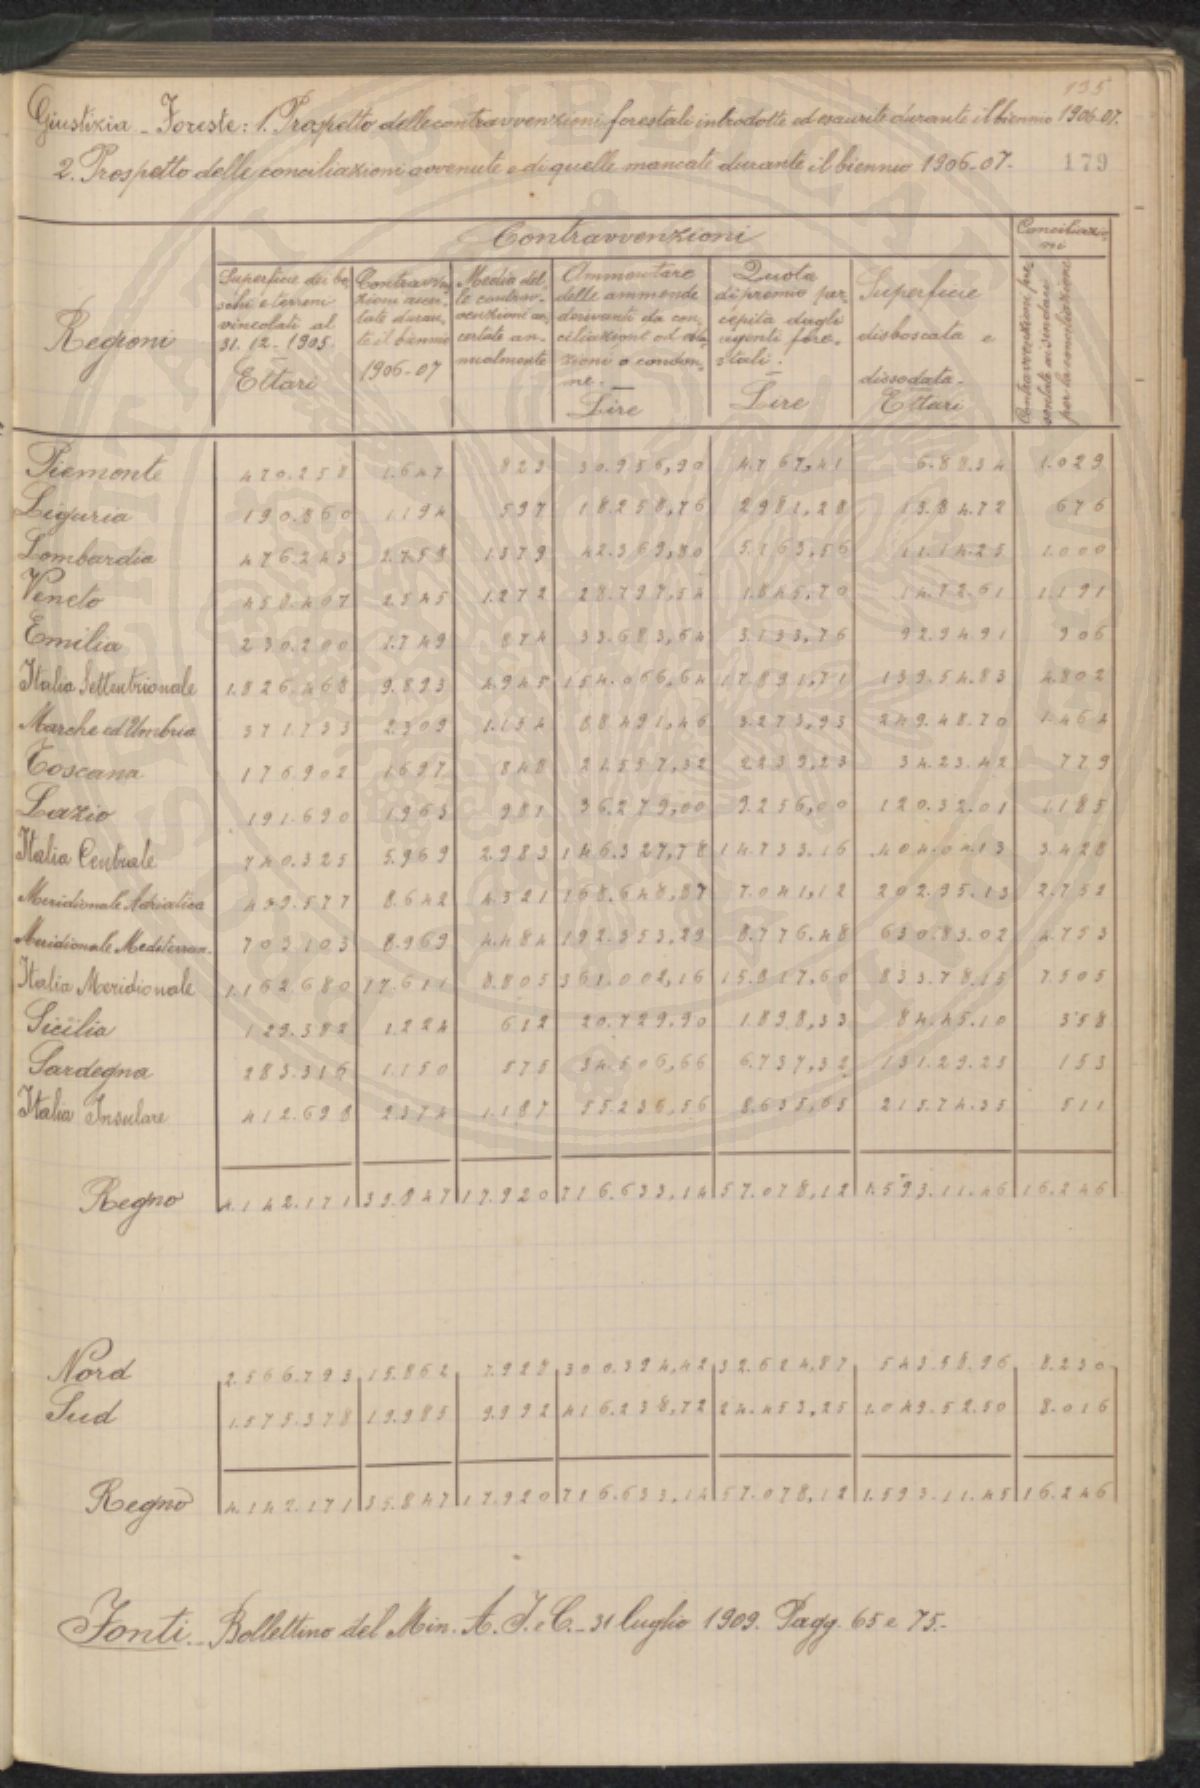 135
Giustizia - Foreste: 1. Prospetto delle contravvenzioni forestali introdotte ed esaurite durante il biennio 1906-07.
2. Prospetto delle conciliazioni avvenute e di quelle mancate durante il biennio 1906-07.
179
Contravvenzioni
Conciliazioni
Regioni
Superficie dei boschi e terreni vincolati al 31.12-1905 Ettari
Contravvenzioni accertate durante il biennio 1906-07
Media delle contravvenzioni accertate annualmente
Ammontare delle ammende derivanti da conciliazioni od oblazioni o condanne. Lire
Quota di premio percepita dagli agenti forestali. Lire
Superficie disboscata e dissodata. Ettari
Contravvenzioni presentate ai sindaci per la conciliazione
Piemonte 470.258 1.647 823 30.956,90 4.767,41 6.88.34 1.029
Liguria 190.860 1.194 597 18.258,76 2981,28 13.84.72 676
Lombardia 476.243 2.758 1.379 42.369,80 5.163,56 11.14.25 1.000
Veneto 458.407 2.545 1.272 28.797,54 1.845,70 14.72.61 1.191
Emilia 230.200 1.749 874 33.683,64 3.133,76 92.94.91 906
Italia Settentrionale 1.826.468 9.893 4.945 154.066,64 17.891,71 139.54.83 4.802
Marche ed Umbria 371.733 2309 1.154 88491,46 3.273,93 249.48.70 1.464
Toscana 176.902 1697 848 21.557,32 2239,23 34.23.42 779
Lazio 191.690 1963 981 36.279,00 9.256,00 120.32.01 1.185
Italia Centrale 740.325 5.969 2.983 146.327,78 14.733.16 404.04.13 3.428
Meridionale Adriatica 459.577 8.642 4.321 168.648,87 7.041,12 202.95.13 2.752
Meridionale Mediterran. 703103 8.969 4.484 192.353,29 8.776.48 630.83.02 4.753
Italia Meridionale 1.162.680 17.611 8.805 361.002,16 15.817,60 833.78.15 7.505
Sicilia 129.382 1.224 612 20.729.90 1.898,33 84.45.10 358
Sardegna 283.316 1.150 575 34.506,66 6.737,32 131.29.25 153
Italia Insulare 412.698 2374 1.187 55.236,56 8.635,65 215.74.35 511
Regno 4.142.171 35.847 17.920 716.633,14 57.078,12 1.593.11.46 16.246
Nord 2.566.793 15.862 7.928 300.394,42 32.624,87 543.58.96 8.230
Sud 1.575.378 19.985 9.992 416.238,72 24.453,25 1.049.52.50 8.016
Regno 4.142.171 35.847 17.920 716.633,14 57.078,12 1.593.11.45 16.246
Fonti.- Bollettino del Min. A. I. e C. - 31 luglio 1909. Pagg. 65 e 75.-